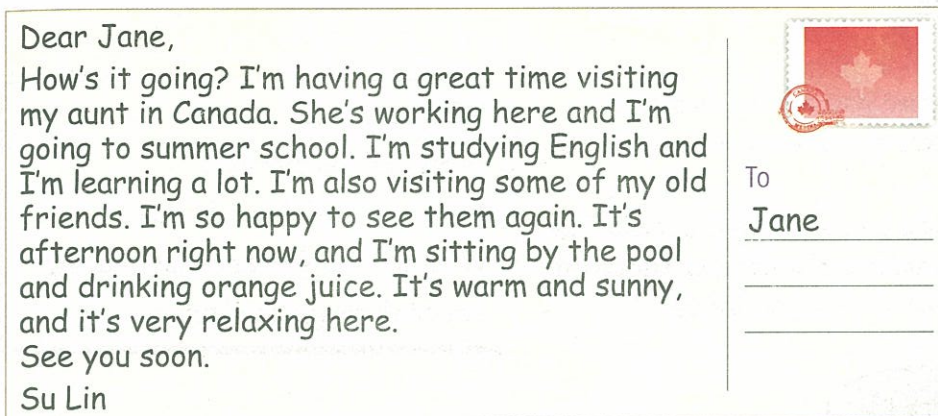 Dear Jane,
How's it going? I'm having a great time visiting
my aunt in Canada. She's working here and I'm
going to summer school. I'm studying English and
I'm learning a lot. I'm also visiting some of my old
friends. I'm so happy to see them again. It's
afternoon right now, and I'm sitting by the pool
and drinking orange juice. It's warm and sunny,
and it's very relaxing here.
See you soon.
Su Lin
To
Jane